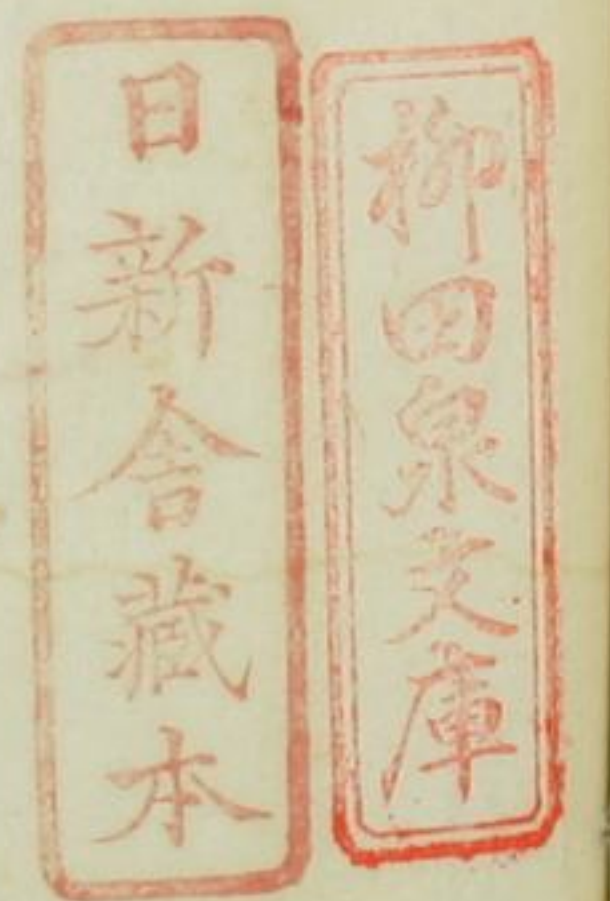 柳田泉文庫
日新舎藏本